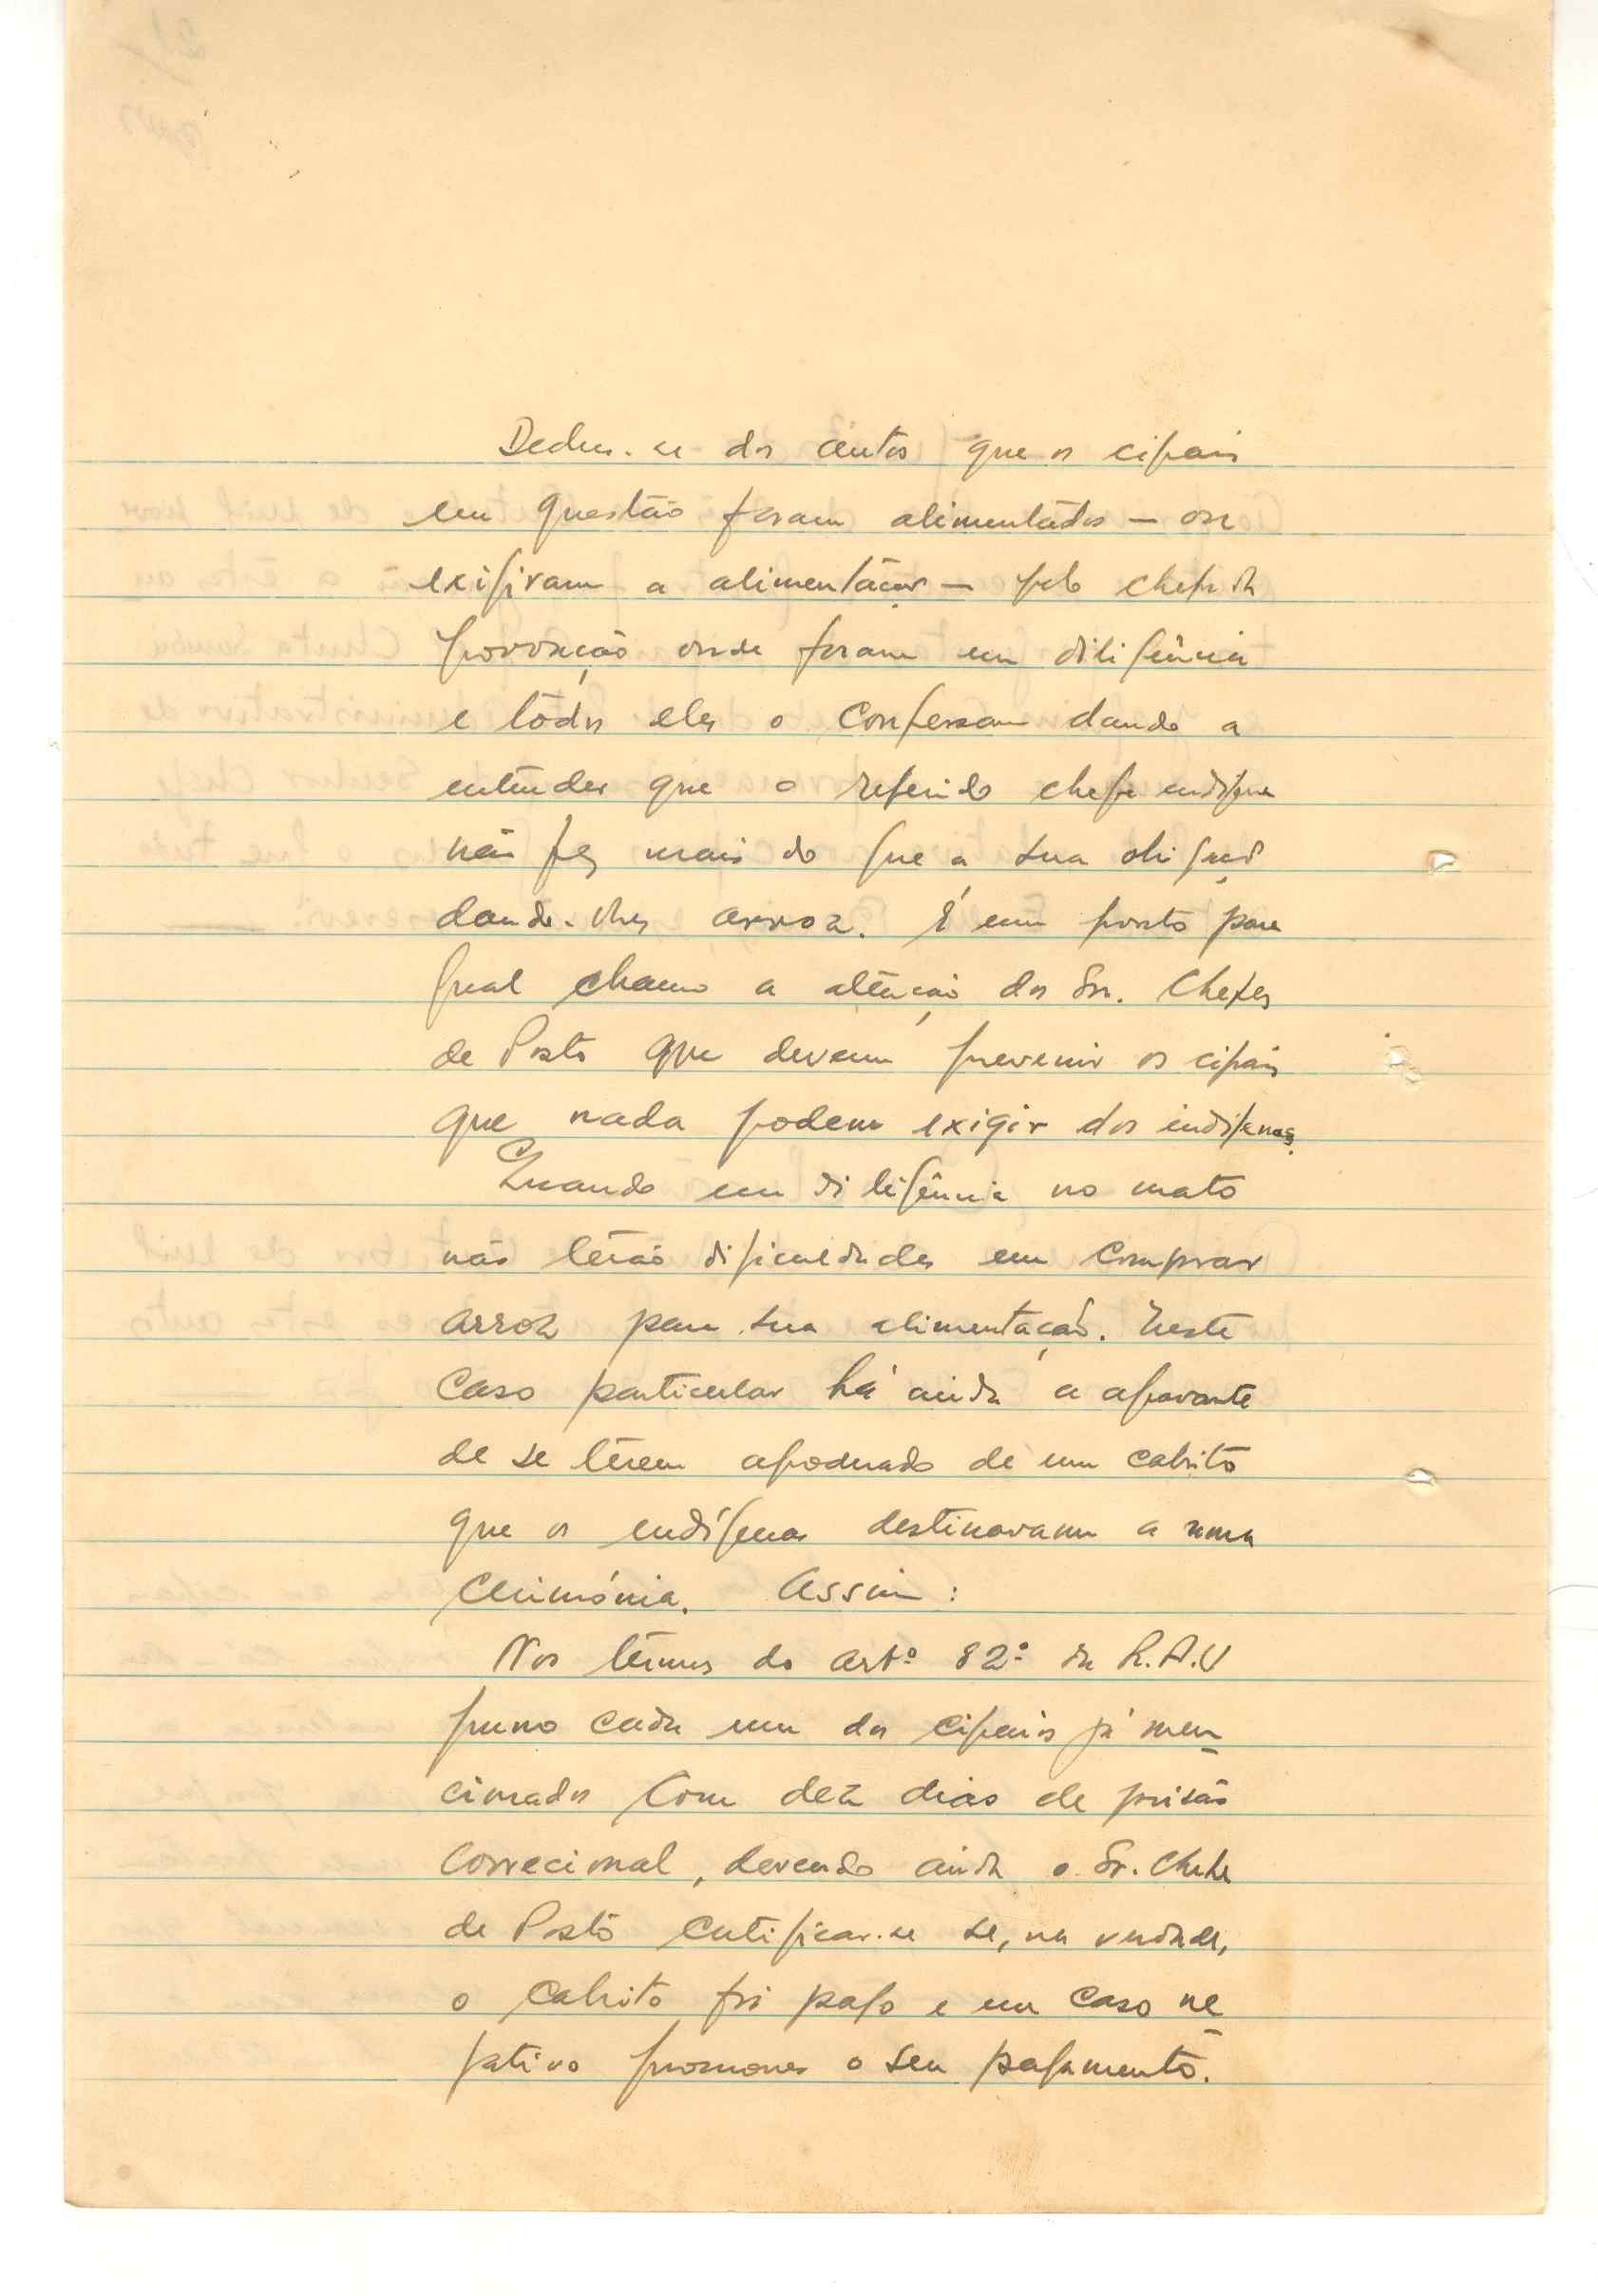 Deduz-se dos autos que os cipais
em questão foram alimentados — ou
exigiram a alimentação — pelo chefe da
povoação onde foram em diligência
e todos eles o confessam dando a
entender que o referido chefe indígena
não fez mais do que a sua obrigação
dando-lhes arroz. É um ponto para
qual chamo a atenção dos Srs. Chefes
de Posto que devem prevenir os cipais
que nada podem exigir dos indígenas.
Quando em diligência no mato
não terão dificuldades em comprar
arroz para sua alimentação. Neste
caso particular há ainda a agravante
de se terem apoderado de um cabrito
que os indígenas destinavam a uma
cerimónia. Assim:
Nos têrmos do artº 82º da R.A.U
puno cada um dos cipais já men-
cionados com dez dias de prisão
correcional, devendo ainda o Sr. Chefe
de Posto certificar-se se, na verdade,
o cabrito foi pago e em caso ne-
gativo promover o seu pagamento.